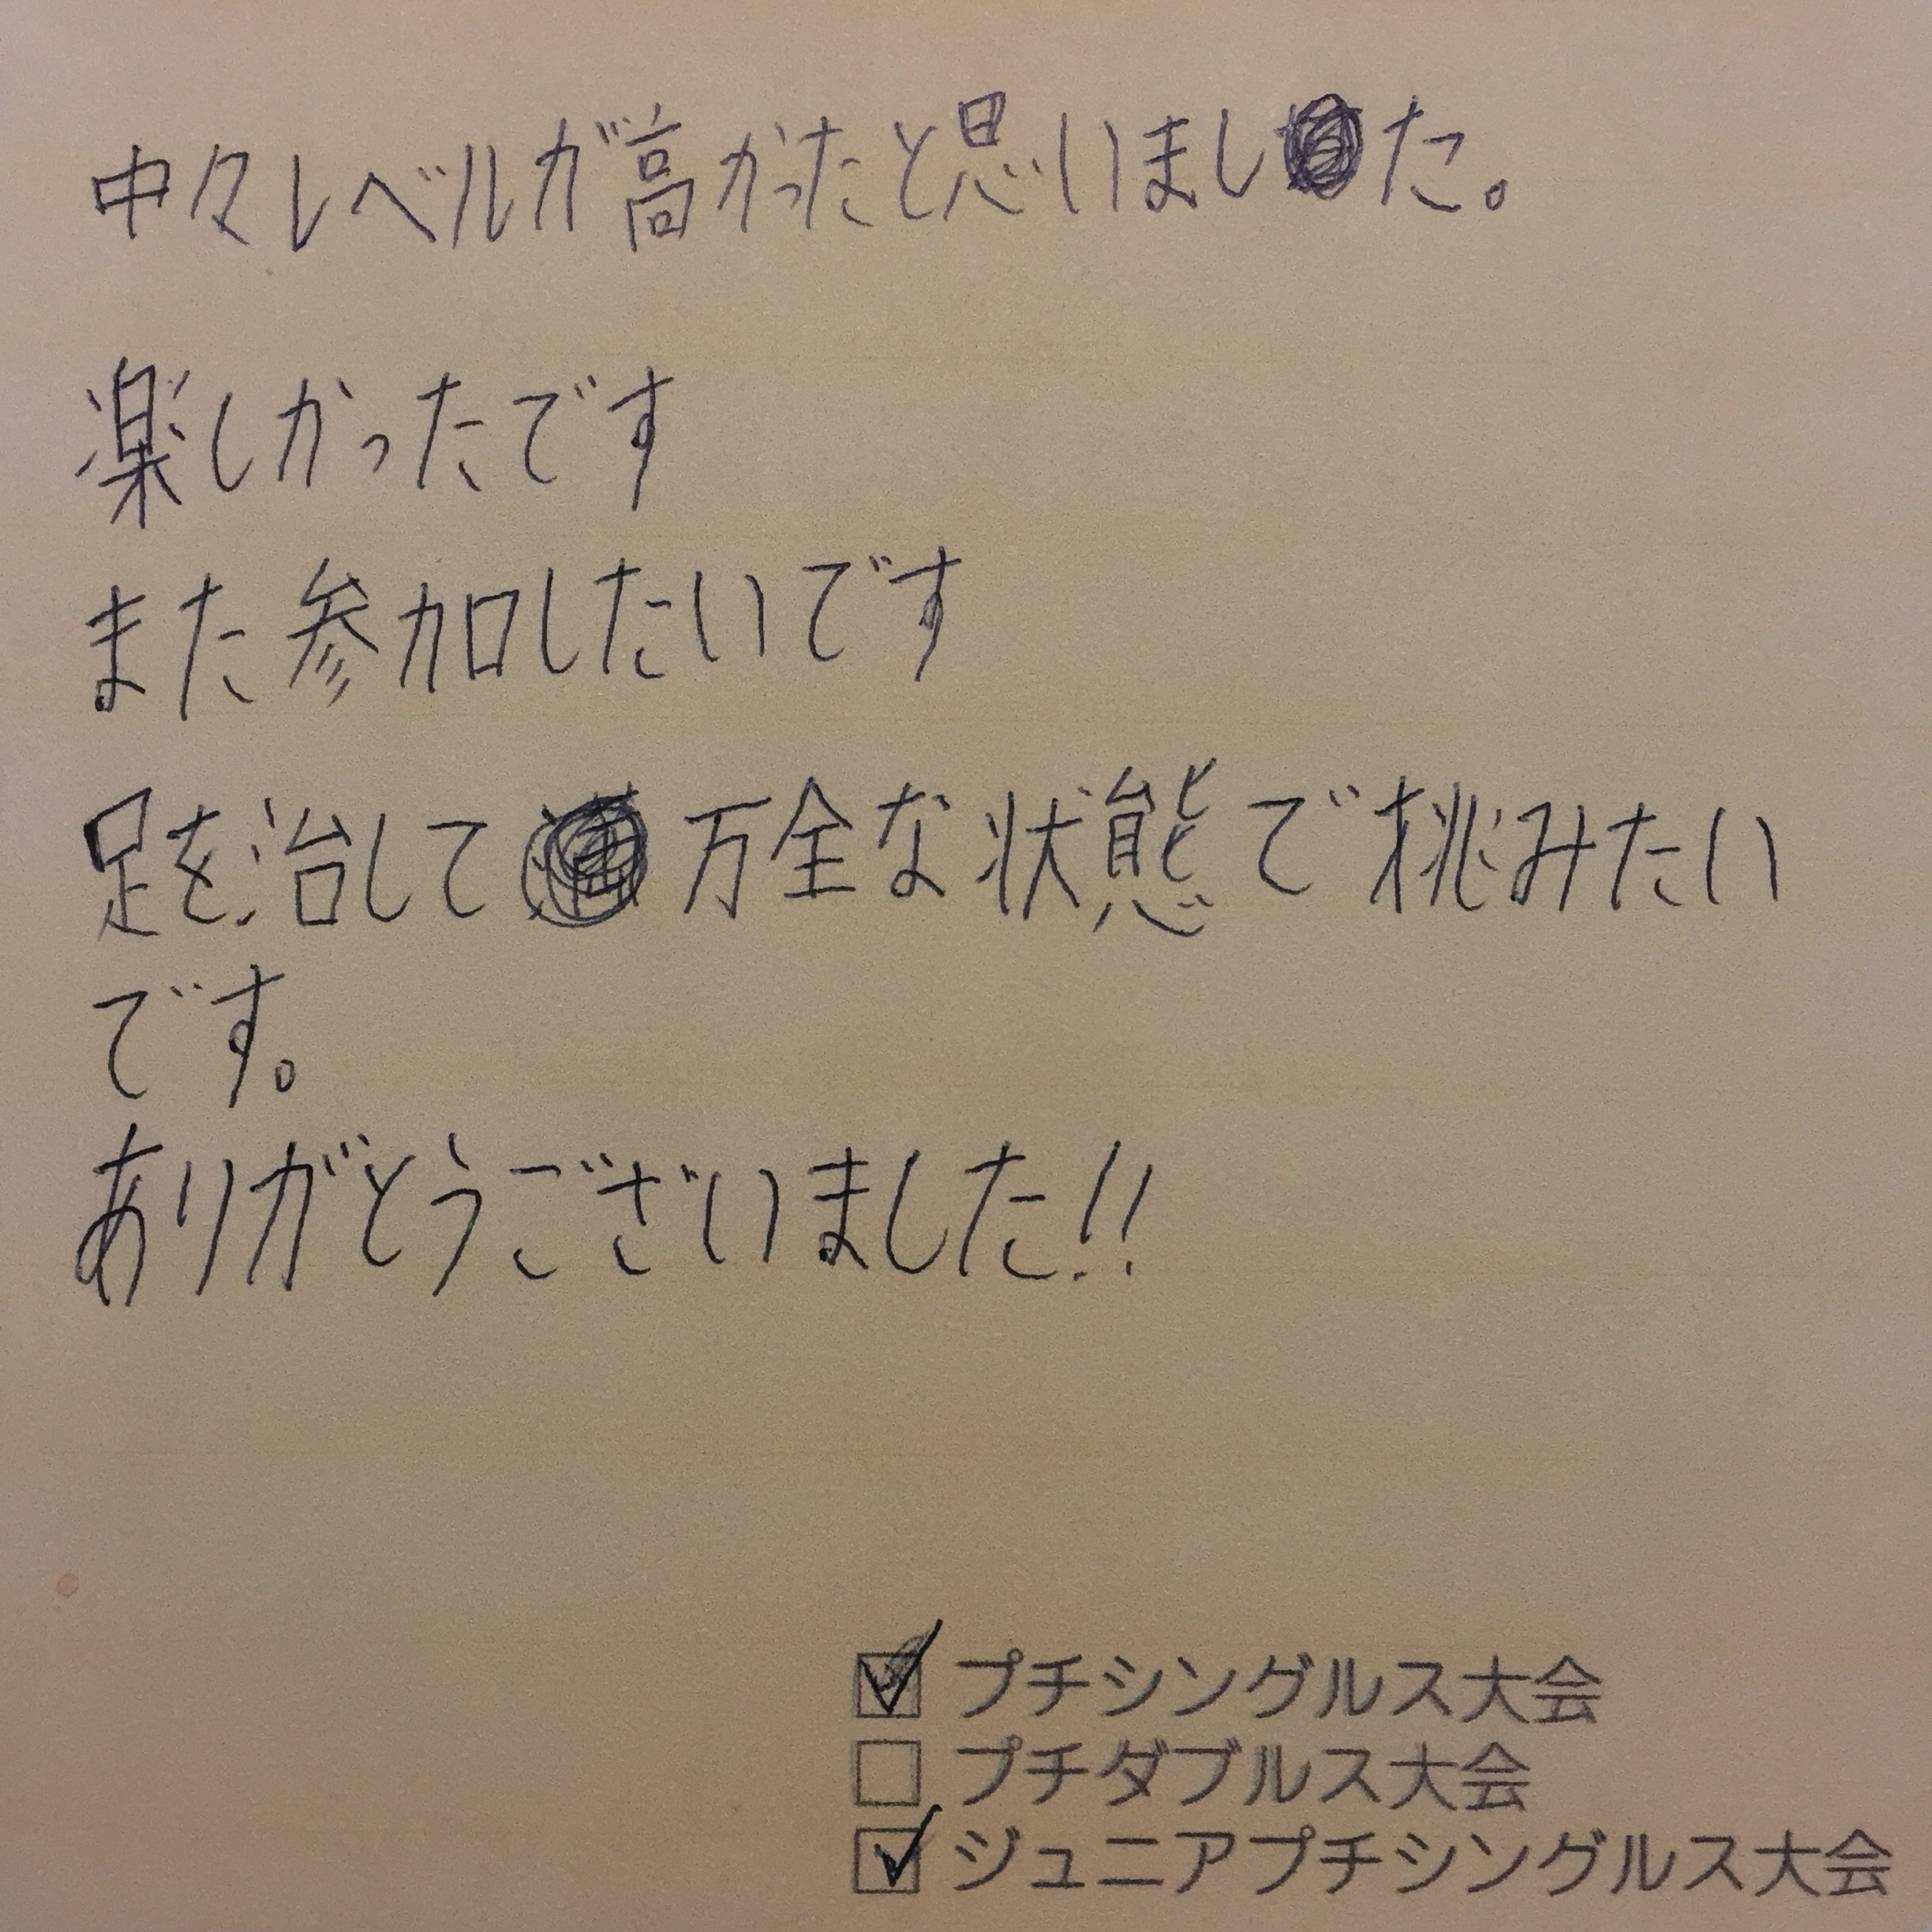 中々レベルが高かったと思いました。
楽しかったです
また参加したいです
足を治して万全な状態で挑みたい
です。
ありがとうございました!!
プチシングルス大会
プチダブルス大会
ジュニアプチシングルス大会